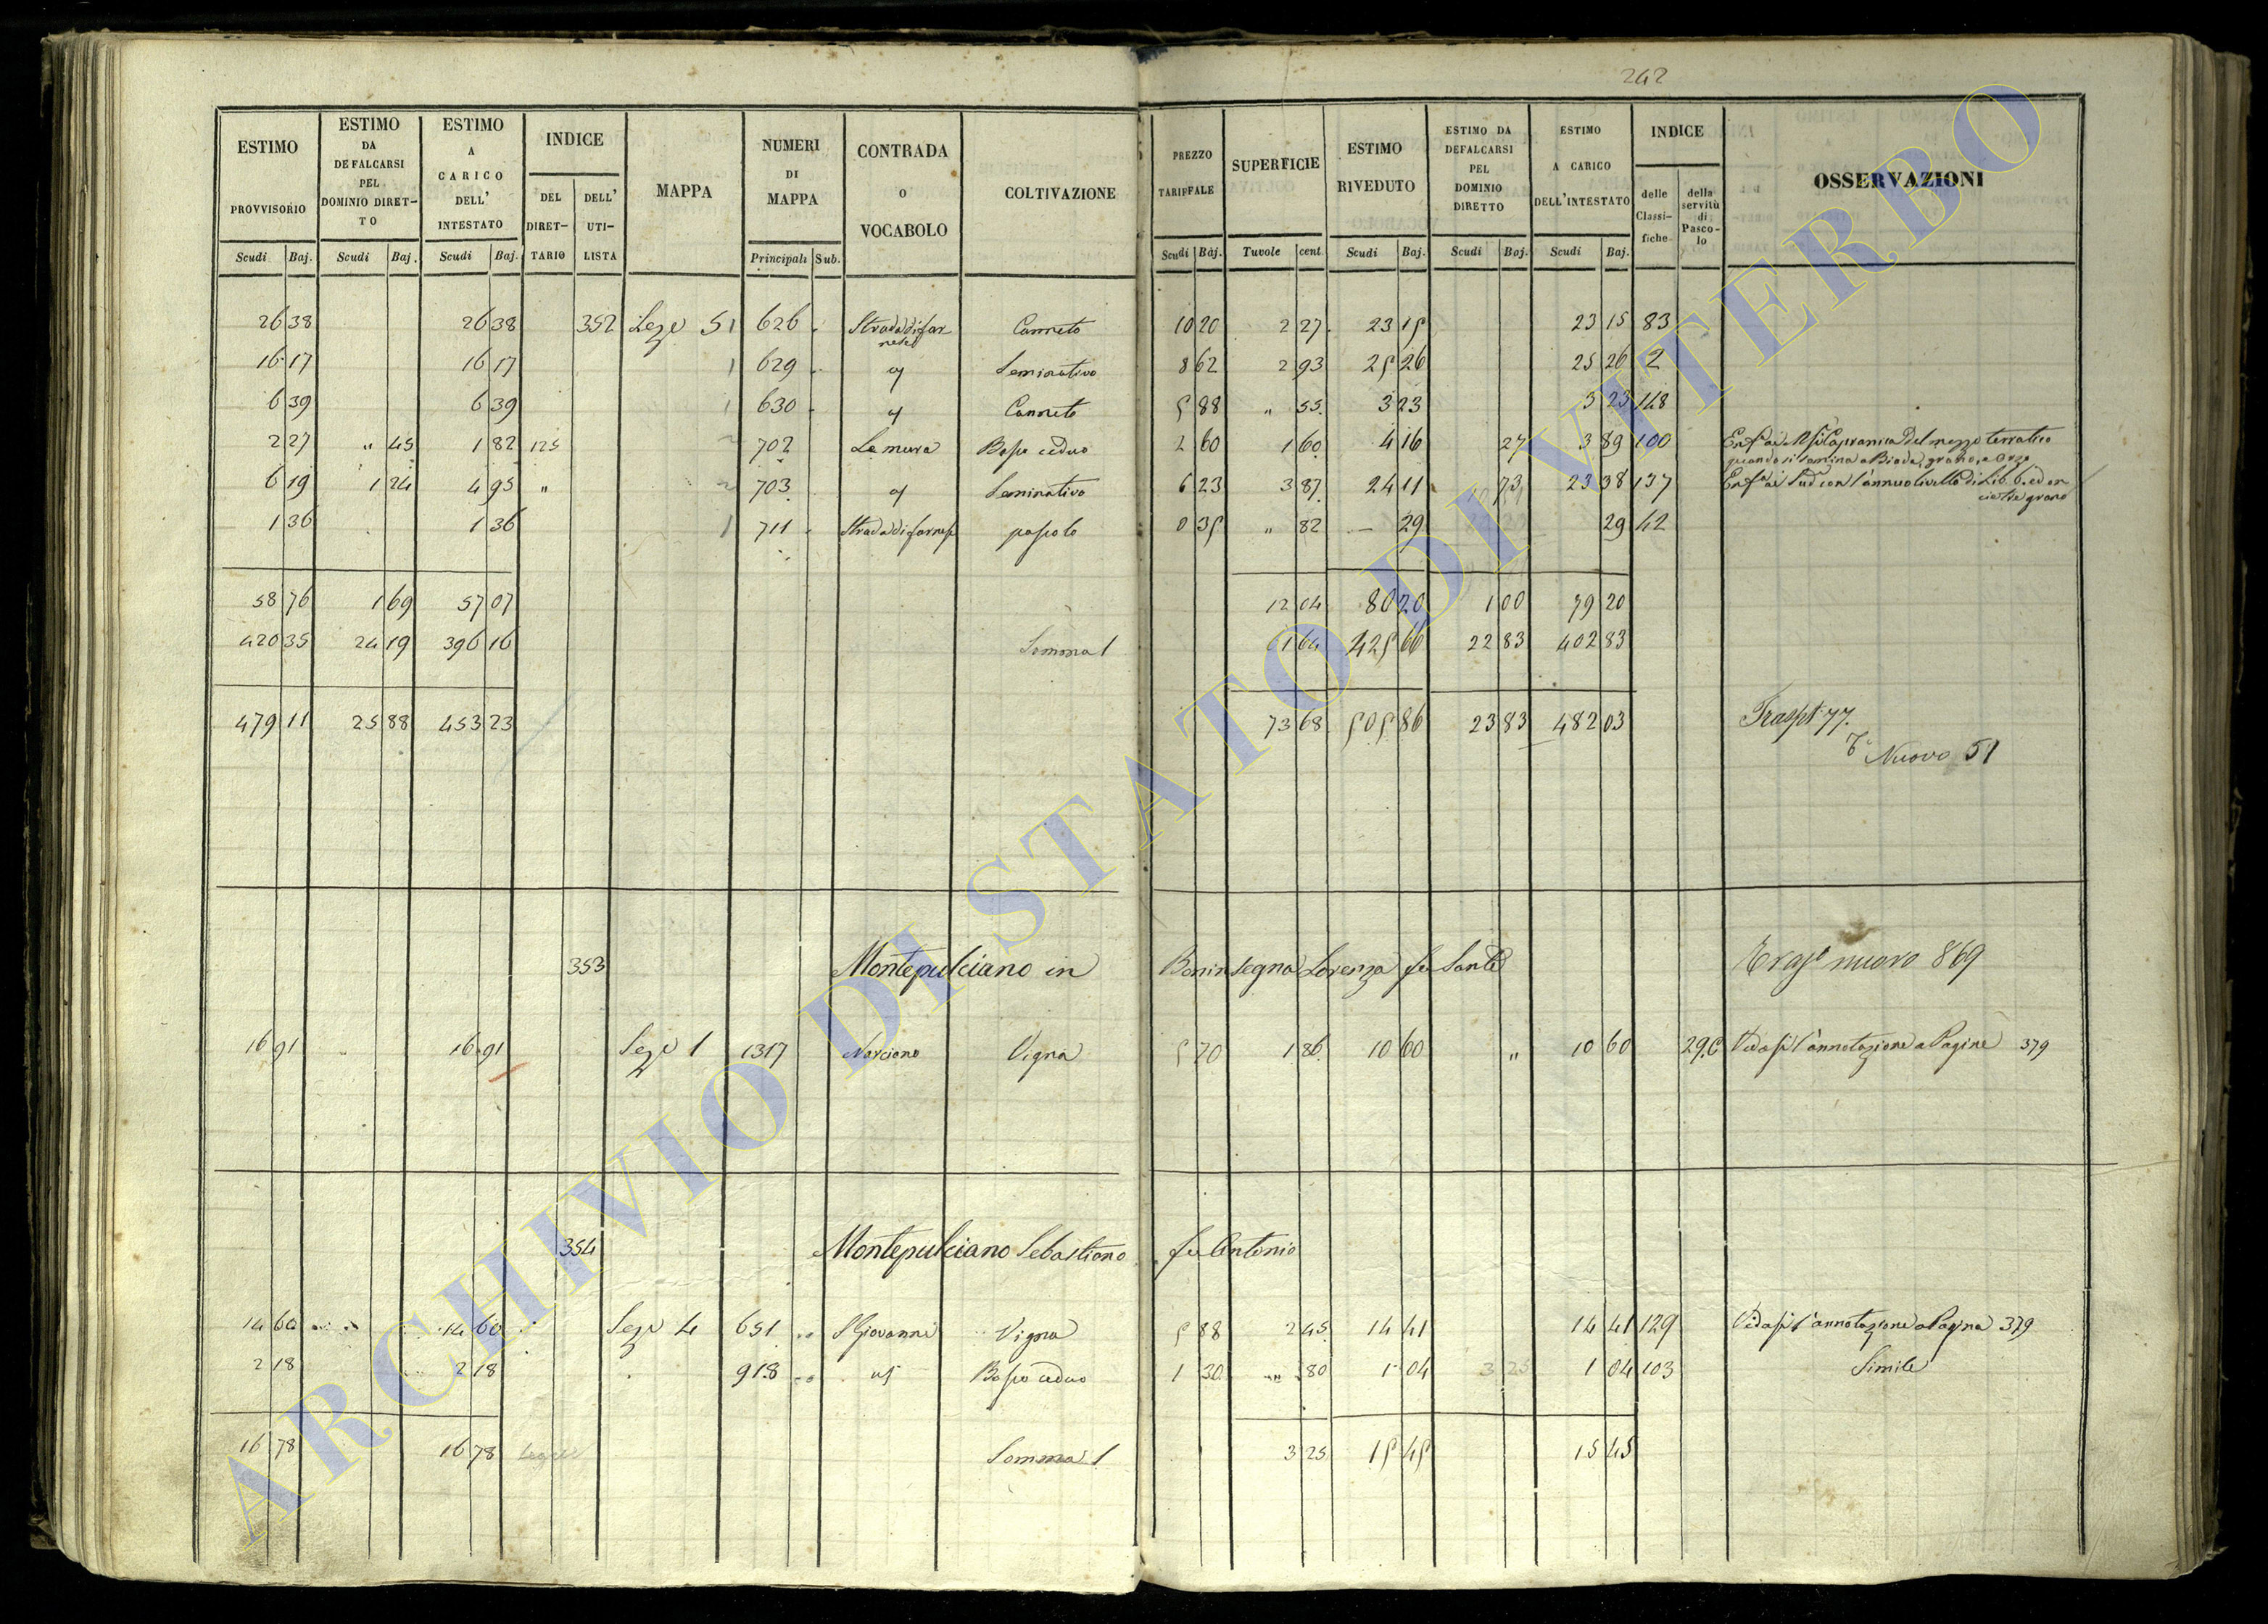 242
ESTIMO PROVVISORIO Scudi Baj. ESTIMO DA DEFALCARSI PEL DOMINIO DIRETTO Scudi Baj. ESTIMO A CARICO DELL' INTESTATO Scudi Baj. INDICE DEL DIRETTARIO DELL' UTILISTA MAPPA NUMERI DI MAPPA Principali Sub. CONTRADA O VOCABOLO COLTIVAZIONE PREZZO TARIFFALE Scudi Baj. SUPERFICIE Tavole cent. ESTIMO RIVEDUTO Scudi Baj. ESTIMO DA DEFALCARSI PEL DOMINIO DIRETTO Scudi Baj. ESTIMO A CARICO DELL'INTESTATO Scudi Baj. INDICE delle Classifiche della servitù di Pascolo OSSERVAZIONI
26 38 26 38 352 Seze 51 626 Strada di farnese Canneto 10 20 2 27 23 15 23 15 83
16 17 16 17 1 629 Seminativo 8 62 2 93 25 26 25 26 2
6 39 6 39 1 630 Canneto 5 88 " 55 3 23 3 23 148
2 27 " 45 1 82 125 2 702 Le mura Bosco ceduo 2 60 1 60 4 16 27 3 89 100 del mezzo terratico
quando si semina a Biada, grano, e Orzo
6 19 1 24 4 95 " 2 703 Seminativo 6 23 3 87 24 11 73 23 38 137 con l'annuo livello di Lib. 6. ed on
cie tre grano
1 36 1 36 1 711 Strada di farnese pascolo 0 35 " 82 — 29 29 42
58 76 1 69 57 07 12 04 80 20 1 00 79 20
420 35 24 19 396 16 Somma 1 61 64 425 66 22 83 402 83
479 11 25 88 453 23 73 68 505 86 23 83 482 03 Traspt. 77.
Nuovo 51
353 Montepulciano in Boninsegna Lorenza fu Sante Trasp. nuovo 869
16 91 16 91 Seze 1 1317 Norciano Vigna 5 70 1 86 10 60 " 10 60 29.C Vedasi l'annotazione a Pagine 379
354 Montepulciano Sebastiano fu Antonio
14 60 14 60 Seze 4 651 S Giovanni Vigna 5 88 2 45 14 41 14 41 129 Vedasi l'annotazione a Pagina 379
2 18 2 18 918 Bosco ceduo 1 30 " 80 1 04 3 25 1 04 103 Simile
16 78 16 78 Somma 1 3 25 15 45 15 45
ARCHIVIO DI STATO DI VITERBO